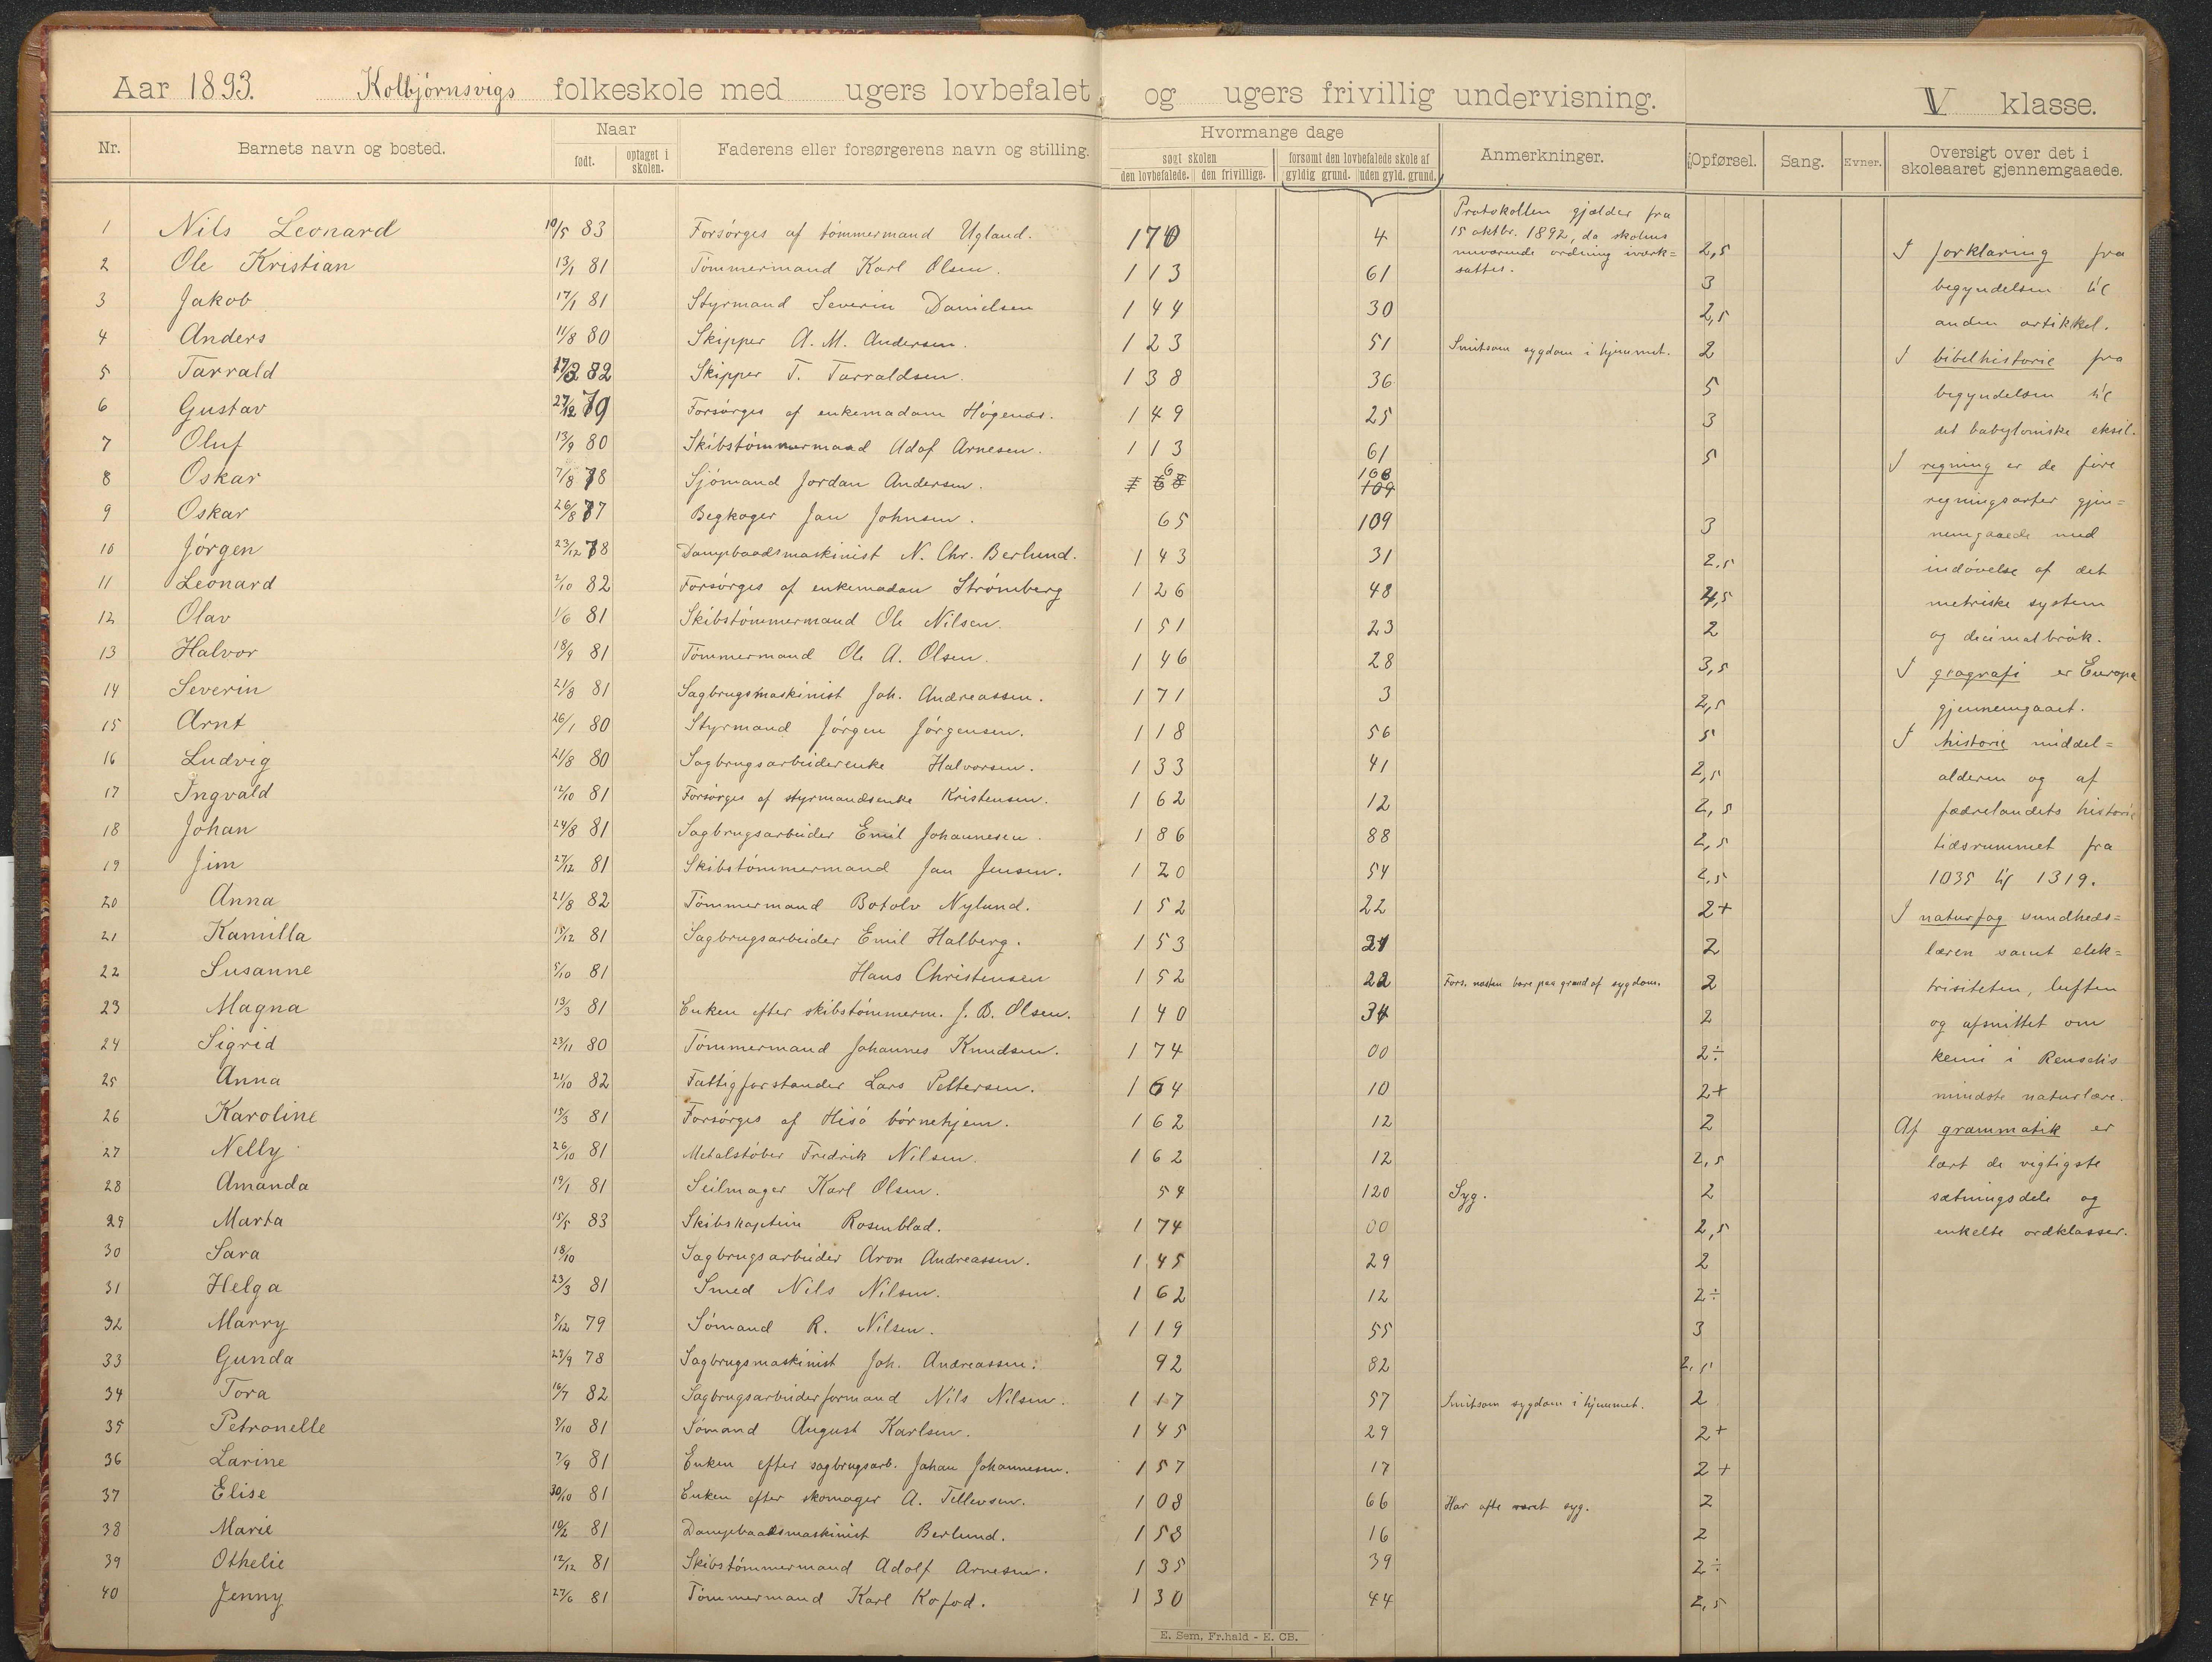 Aar 1893. Kolbjørnsvigs folkeskole med ugers lovbefalet og ugers frivillig undervisning. V klasse.
Nr. Barnets navn og bosted. Naar født. optaget i skolen. Faderens eller forsørgerens navn og stilling. Hvormange dage søgt skolen den lovbefalede. den frivillige. forsømt den lovbefalede skole af gyldig grund. uden gyld. grund. Anmerkninger. Opførsel. Sang. Evner. Oversigt over det i skoleaaret gjennemgaaede.
Protokollen gjælder fra
15 oktbr. 1892, da skolens
nuværende ordning iværk=
sattes.
1 Nils Leonard 10/5 83 Forsørges af tømmermand Ugland. 170 4 2,5
2 Ole Kristian 13/1 81 Tømmermand Karl Olsen. 113 61 3
3 Jakob 17/1 81 Styrmand Severin Danielsen 144 30 2,5
4 Anders 11/8 80 Skipper A. M. Andersen. 123 51 Smitsom sygdom i hjemmet. 2
5 Tarrald 17/3 82 Skipper T. Tarraldsen. 138 36 5
6 Gustav 27/12 79 Forsørges af enkemadam 149 25 3
7 Oluf 13/9 80 Skibstømmermand Adof Arnesen. 113 61 5
8 Oskar 7/8 78 Sjømand Jordan Andersen.
9 Oskar 26/8 77 Begkoger Jan Johnsen. 65 109 3
10 Jørgen 23/12 78 Dampbaadsmaskinist N. Chr. Berlund. 143 31 2,5
11 Leonard 2/10 82 Forsørges af enkemadam Strømberg 126 48 4,5
12 Olav 1/6 81 Skibstømmermand Ole Nilsen. 151 23 2
13 Halvor 18/9 81 Tømmermand Ole A. Olsen. 146 28 3,5
14 Severin 21/8 81 Sagbrugsmaskinist Joh. Andreassen. 171 3 2,5
15 Arnt 26/1 80 Styrmand Jørgen Jørgensen. 118 56 5
16 Ludvig 21/8 80 Sagbrugsarbeiderenke Halvorsen. 133 41 2,5
17 Ingvald 12/10 81 Forsørges af styrmandsenke Kristensen. 162 12 2,5
18 Johan 24/8 81 Sagbrugsarbeider Emil Johannesen. 186 88 2,5
19 Jim 27/12 81 Skibstømmermand Jan Jensen. 120 54 2,5
20 Anna 21/8 82 Tømmermand Botolv Nylund. 152 22 2+
21 Kamilla 18/12 81 Sagbrugsarbeider Emil Halberg. 153 21 2
22 Susanne 5/10 81 Hans Christensen 152 22 Fors. næsten bare paa grund af sygdom. 2
23 Magna 13/3 81 Enken efter skibstømmerm. J. B. Olsen. 140 34 2
24 Sigrid 23/11 80 Tømmermand Johannes Knudsen. 174 00 2÷
25 Anna 21/10 82 Fattigforstander Lars Pettersen. 164 10 2+
26 Karoline 15/3 81 Forsørges af Hisø børnehjem. 162 12 2
27 Nelly 26/10 81 Metalstøber Fredrik Nilsen. 162 12 2,5
28 Amanda 19/1 81 Seilmager Karl Olsen. 54 120 Syg. 2
29 Marta 15/5 83 Skibskaptein Rosenblad. 174 00 2,5
30 Sara 18/10 Sagbrugsarbeider Aron Andreassen. 145 29 2
31 Helga 23/3 81 Smed Nils Nilsen. 162 12 2÷
32 Marry 5/12 79 Sømand R. Nilsen. 119 55 3
33 Gunda 29/9 78 Sagbrugsmaskinist Joh. Andreassen. 92 82 2,5
34 Tora 16/7 82 Sagbrugsarbeiderformand Nils Nilsen. 117 57 Smitsom sygdom i hjemmet. 2
35 Petronelle 5/10 81 Sømand August Karlsen. 145 29 2+
36 Larine 7/9 81 Enken efter sagbrugsarb. Johan Johannesen. 157 17 2+
37 Elise 30/10 81 Enken efter skomager A. Tellevsen. 108 66 Har ofte været syg. 2
38 Marie 10/2 81 Dampbaadsmaskinist Berlund. 158 16 2
39 Othelie 12/12 81 Skibstømmermand Adolf Arnesen. 135 39 2÷
40 Jenny 27/6 81 Tømmermand Karl Kofod. 130 44 2,5
I forklaring fra
begyndelsen til
anden artikkel.
I bibelhistorie fra
begyndelsen til
det babyloniske eksil.
I regning er de fire
regningsarter gjen=
nemgaaede med
indøvelse af det
metriske system
og decimalbrøk.
I geografi er Europa
gjennemgaaet.
I historie middel=
alderen og af
fædrelandets historie
tidsrummet fra
1035 til 1319.
I naturfag sundheds=
læren samt elek=
trisiteten, luften
og afsnittet om
kemi i Rensch's
mindste naturlære.
Af grammatik er
lært de vigtigste
sætningsdele og
enkelte ordklasser.
E. Sem, Fr.hald - E. CB.